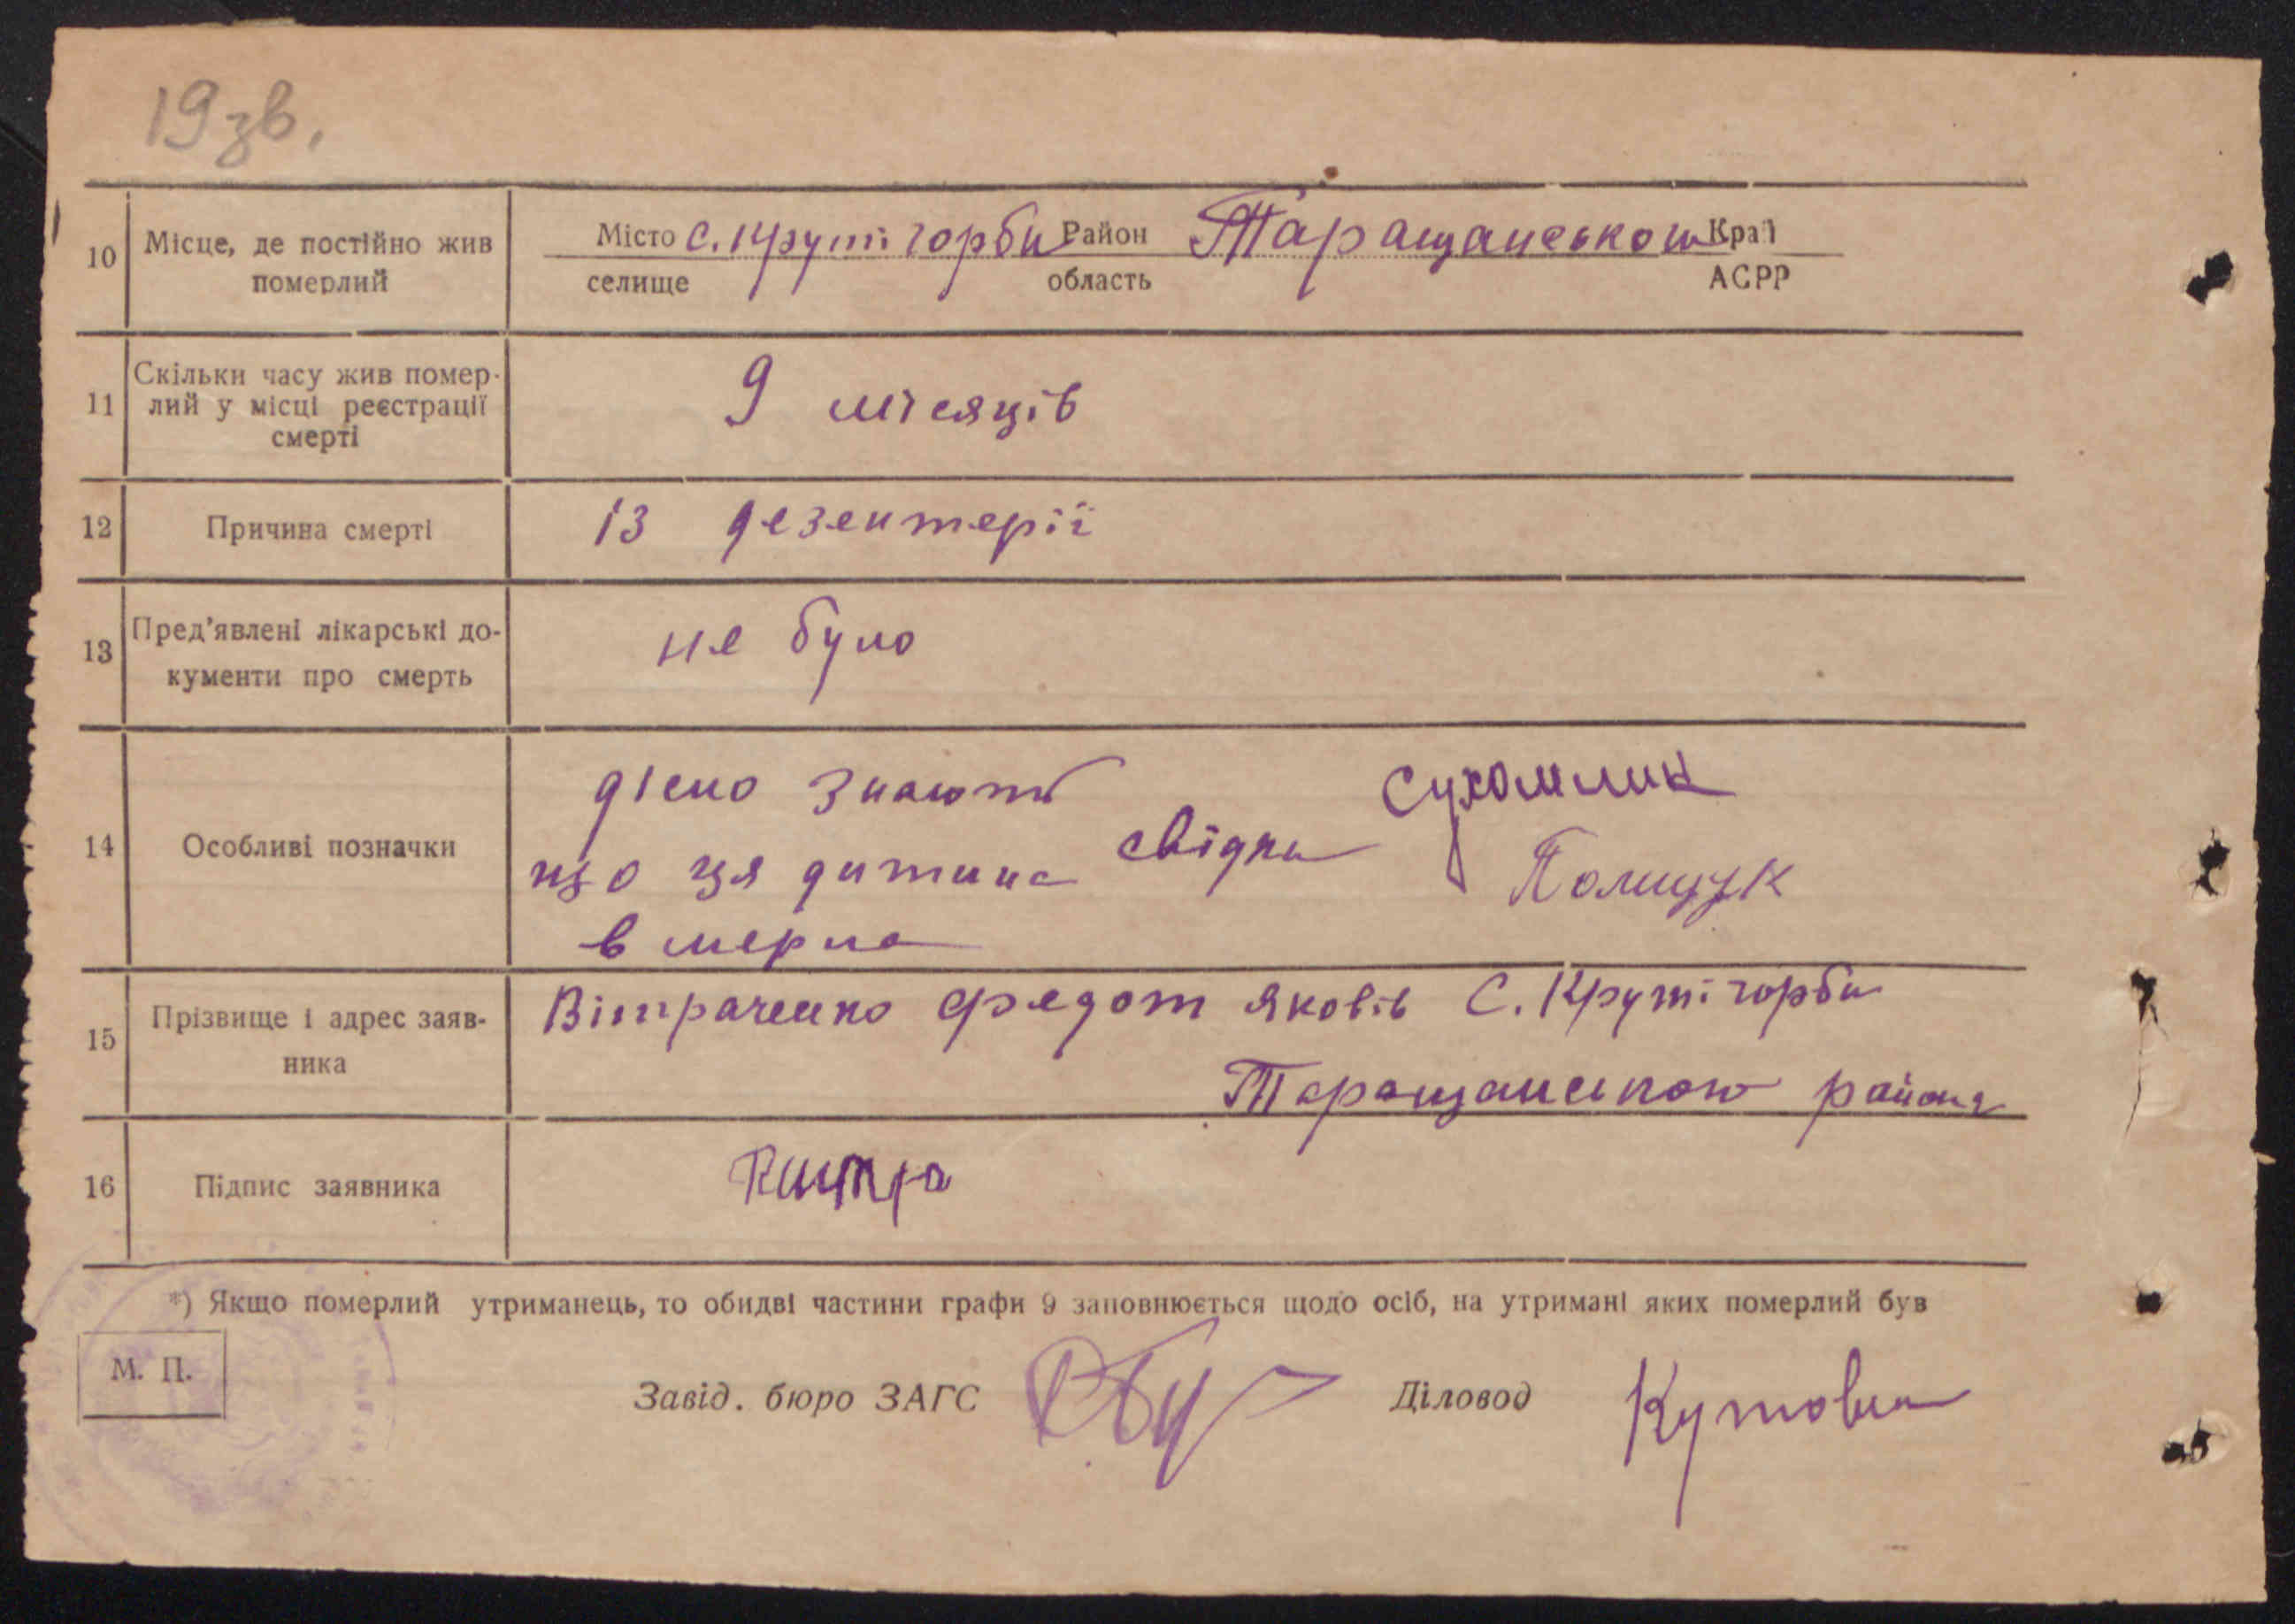 19зв.
10 Місце, де постійно жив померлий
Місто с. Круті горби Район Таращанською Край
селище область АСРР
11 Скільки часу жив помер-
лий у місці реєстрації
смерті
9 місяців
12 Причина смерті
із дезентерії
13 Пред'явлені лікарські до-
кументи про смерть
не було
14 Особливі позначки
дісно знають
що ця дитина
вмерла
свідки Сухомлин
Полищук
15 Прізвище і адрес заяв-
ника
Вітраченко Федот Яковів С. Круті горби
Таращанською района
16 Підпис заявника
*) Якщо померлий утриманець, то обидві частини графи 9 заповнюється щодо осіб, на утримані яких померлий був
М. П.
Завід. бюро ЗАГС Діловод Кутова